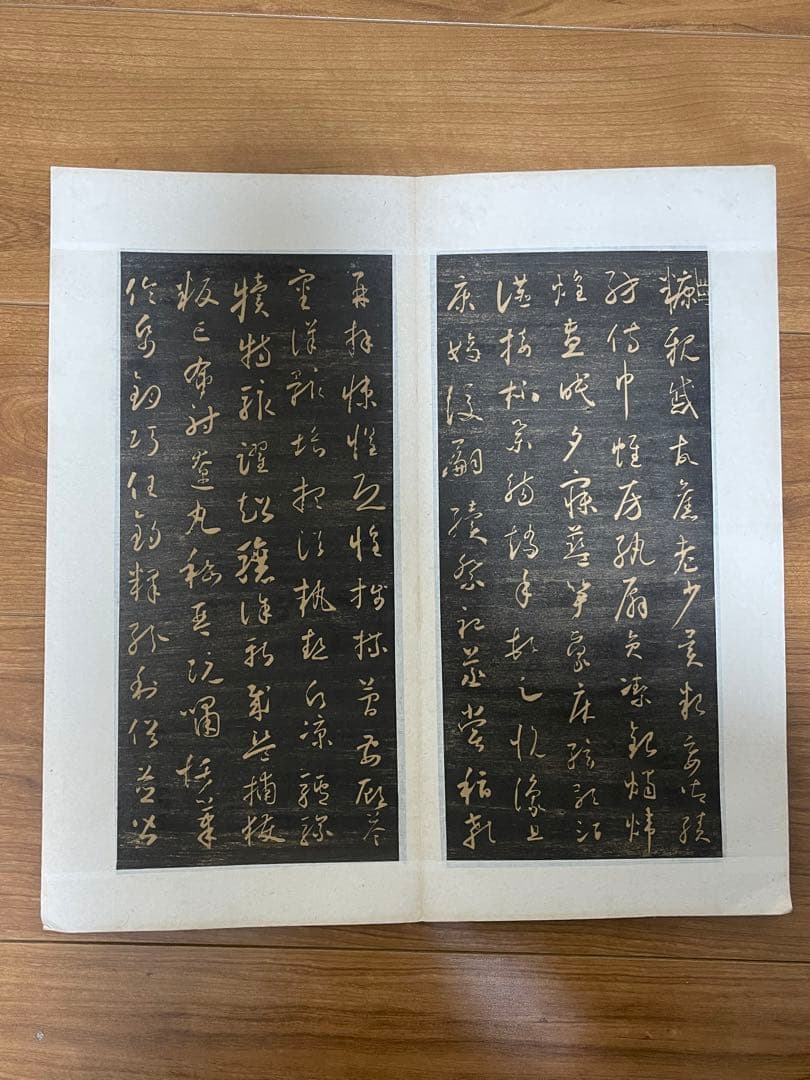 糠親戚故舊老少異糧妾御績
紡侍巾帷房紈扇員潔銀燭煒
煌晝眠夕寐藍笋象床弦歌酒
讌接杯舉觴矯手頓足悅豫且
康嫡後嗣續祭祀蒸嘗稽顙
再拜悚懼恐惶牋牒簡要顧答
審詳骸垢想浴執熱願涼驢騾
犢特駭躍超驤誅斬賊盜捕獲
叛亡布射遼丸嵇琴阮嘯恬筆
倫紙鈞巧任釣釋紛利俗並皆